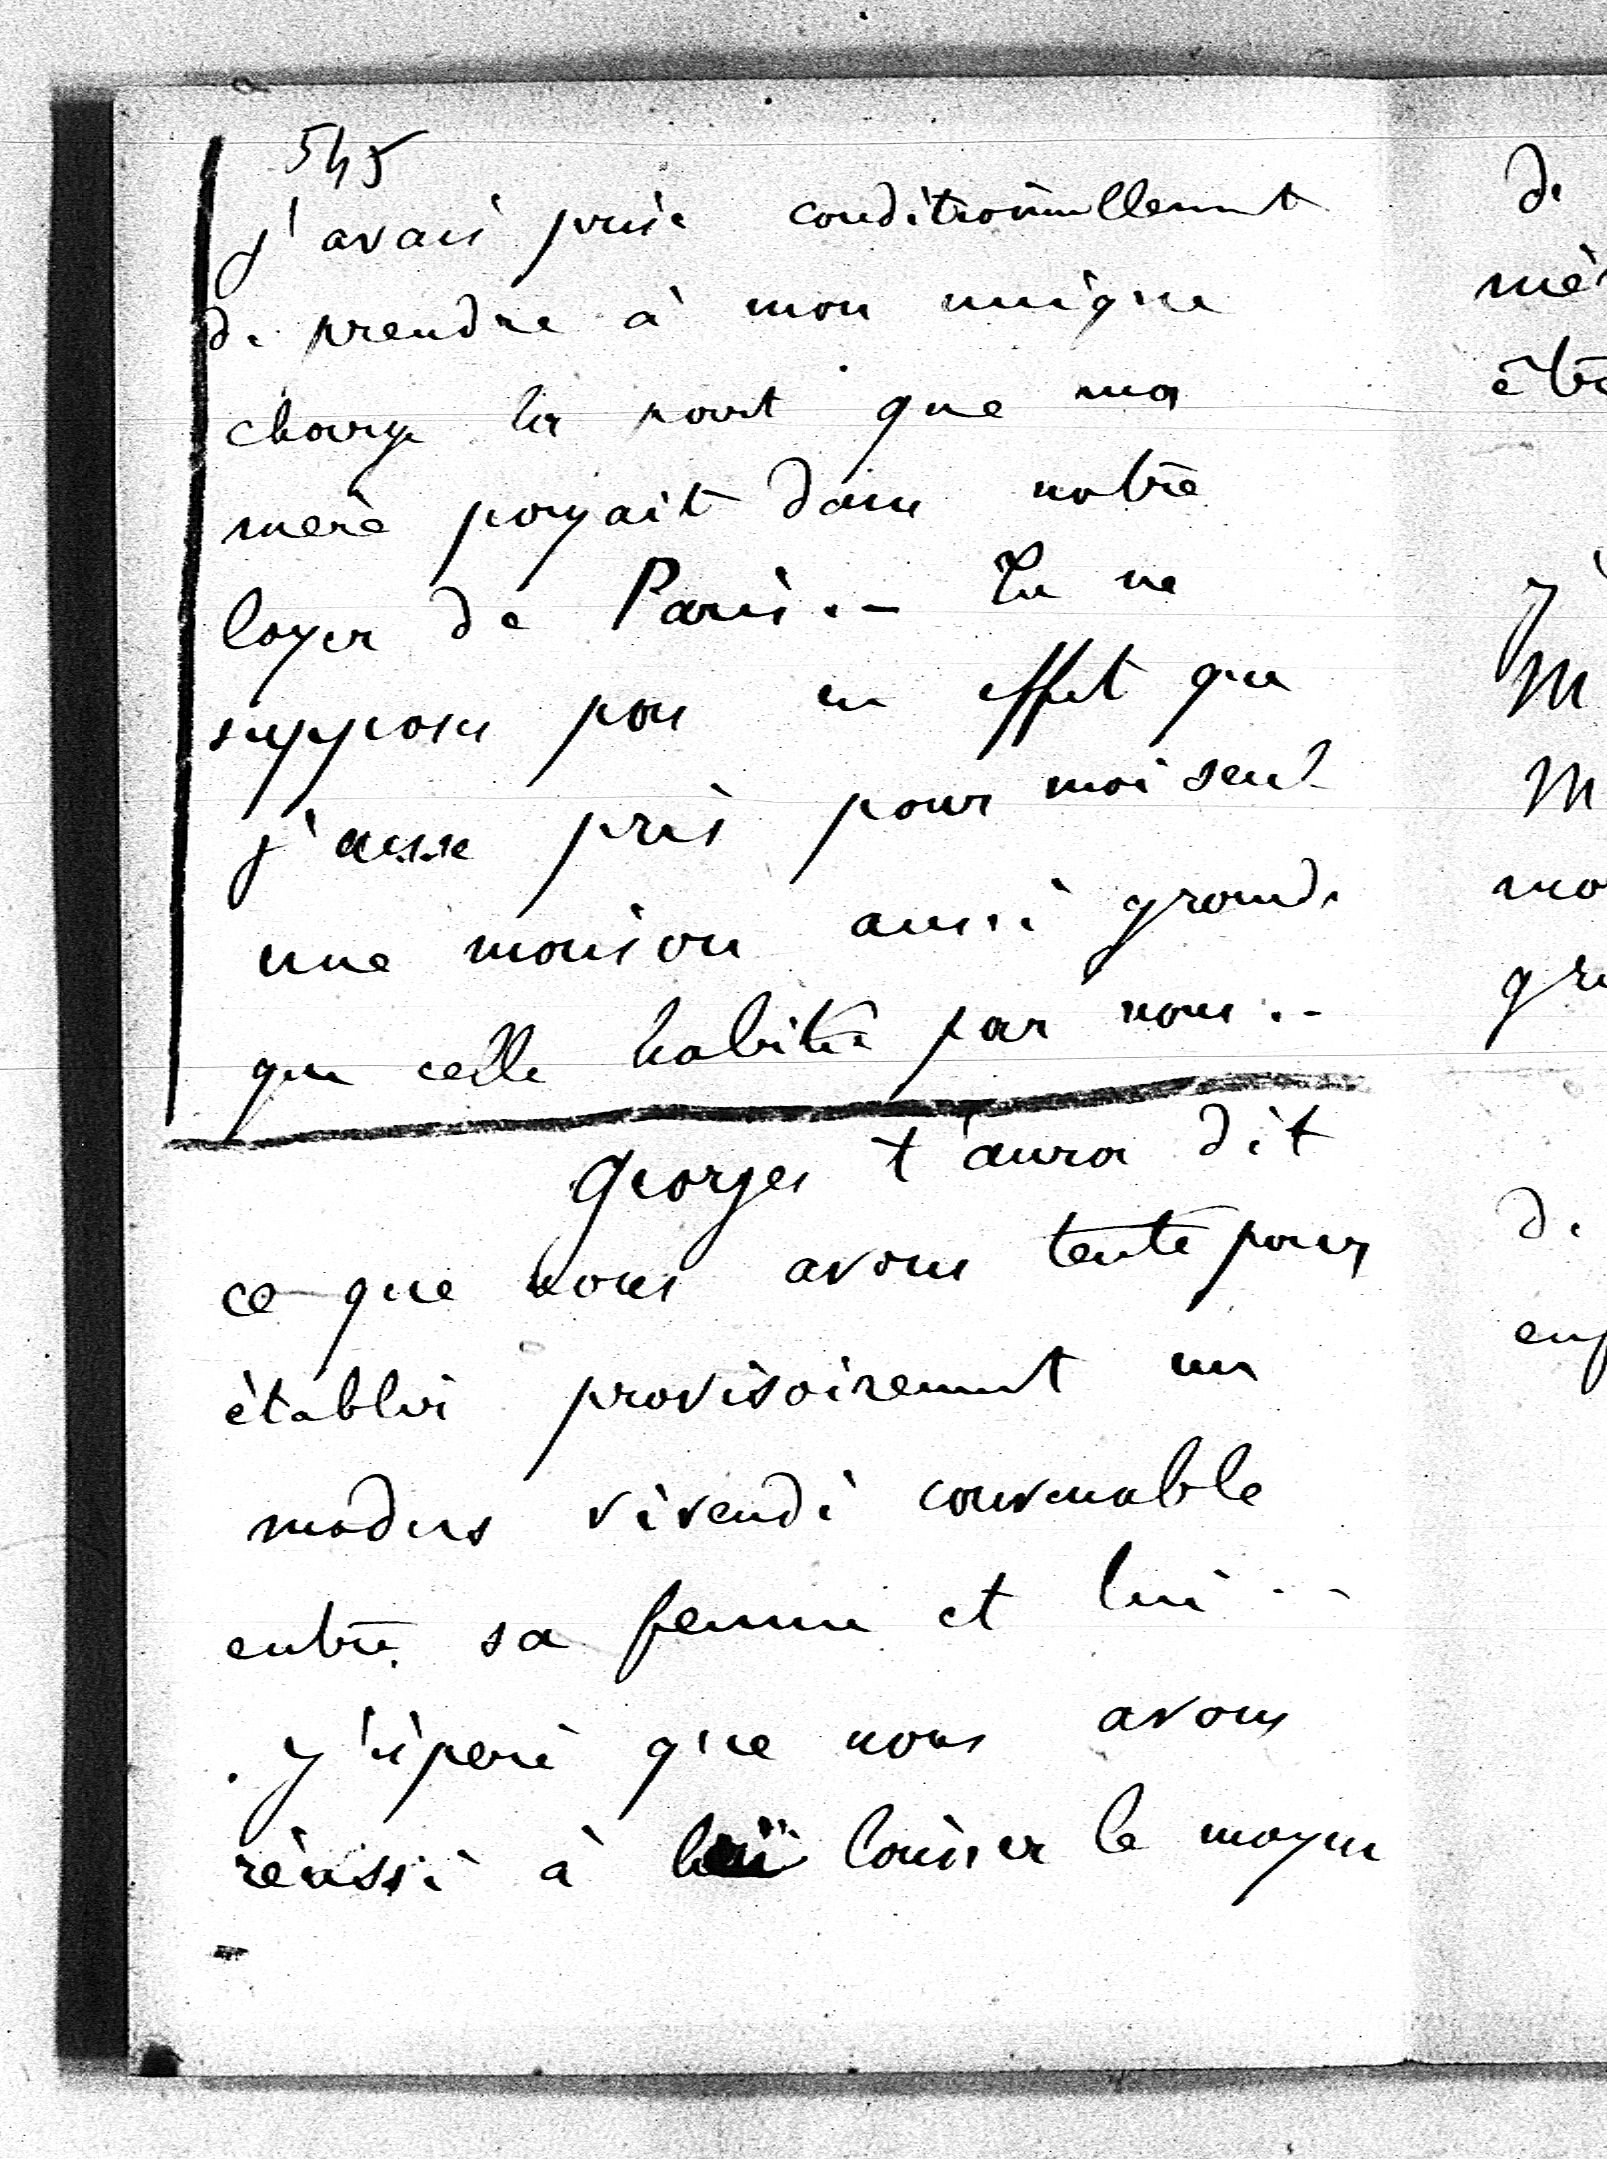 545
j'avais prise conditionnellement
de prendre à mon unique
charge la part que ma
mère payait dans notre
loyer de Paris. – Tu ne
supposes pas en effet que
j'eusse pris pour moi seul
une maison aussi grande
que celle habitée par nous. –
Georges t'aura dit
ce que nous avons tenté pour
établir provisoirement un
modus vivendi convenable
entre sa femme et lui. –
j'espère que nous avons
réussi à lui laisser le moyen
de
mè
êtr
j'
M
M
mo
gr
de
enf